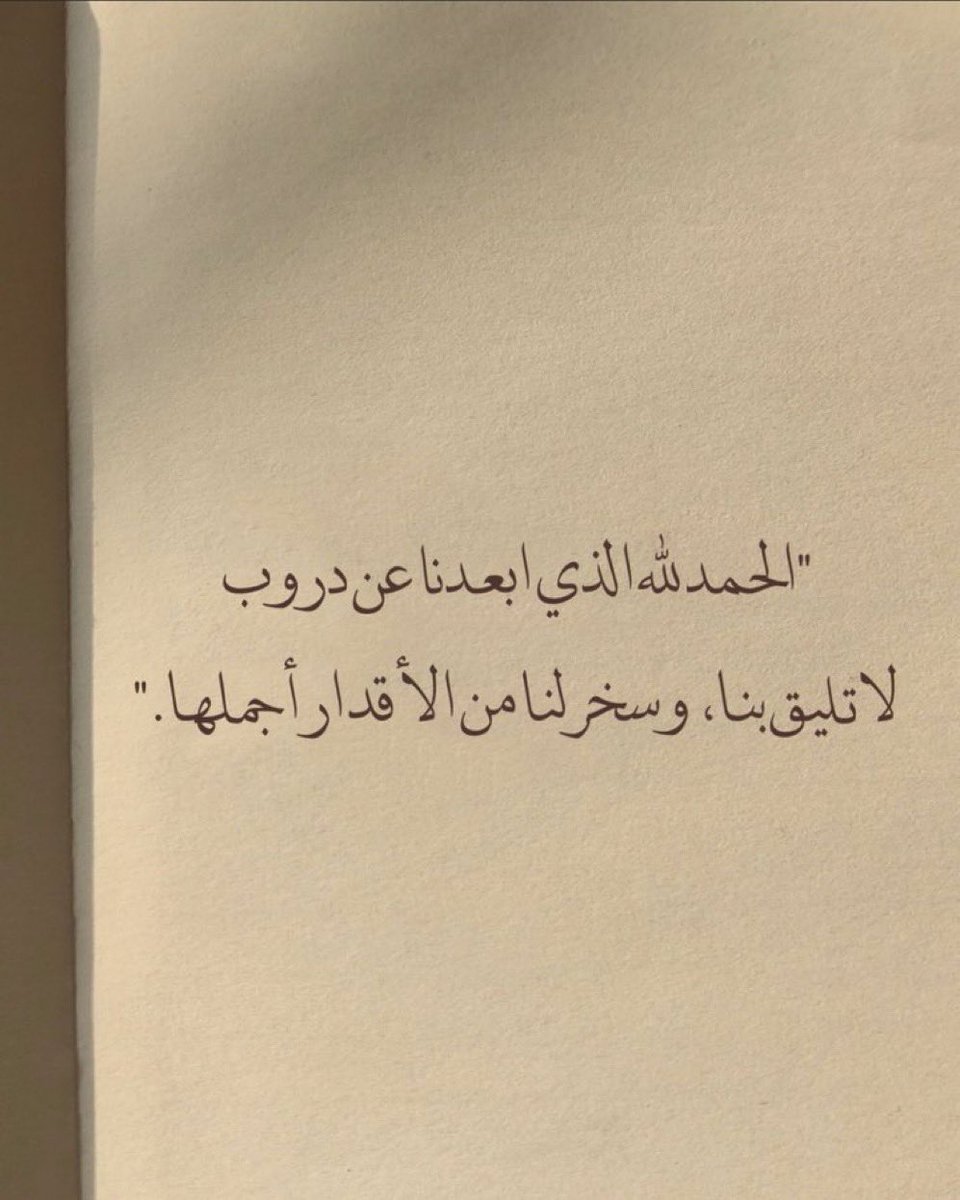 "الحمدلله الذي ابعدنا عن دروب
لا تليق بنا، وسخر لنا من الأقدار أجملها."